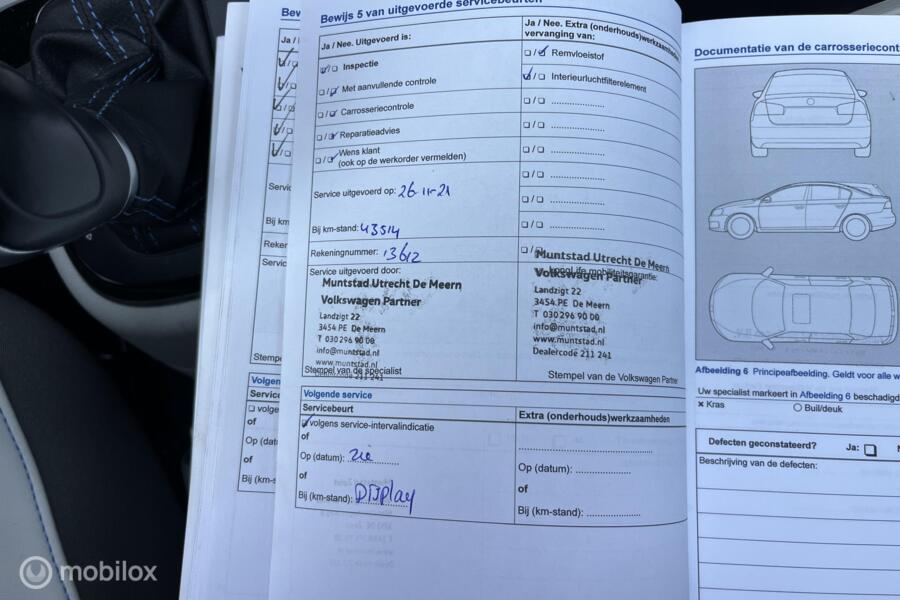 Bewijs 5 van uitgevoerde servicebeurten
Ja / Nee. Uitgevoerd is:
Inspectie
Met aanvullende controle
Carrosseriecontrole
Reparatieadvies
Wens klant
(ook op de werkorder vermelden)
Service uitgevoerd op: 26-11-21
Bij km-stand: 43514
Rekeningnummer: 13612
Service uitgevoerd door:
Muntstad Utrecht De Meern
Volkswagen Partner
Landzigt 22
3454 PE De Meern
T 030 296 90 00
info@muntstad.nl
www.muntstad.nl
Dealercode 211 241
Stempel van de specialist
Ja / Nee. Extra (onderhouds)werkzaamheden
vervanging van:
Remvloeistof
Interieurluchtfilterelement
Muntstad Utrecht De Meern
Volkswagen Partner
Landzigt 22
3454 PE De Meern
T 030 296 90 00
info@muntstad.nl
www.muntstad.nl
Dealercode 211 241
Stempel van de Volkswagen Partner
Volgende service
Servicebeurt
volgens service-intervalindicatie
of
Op (datum): zie
of
Bij (km-stand): DISPlAY
Extra (onderhouds)werkzaamheden
Op (datum):
of
Bij (km-stand):
Documentatie van de carrosseriecont
Afbeelding 6 Principeafbeelding. Geldt voor alle
Uw specialist markeert in Afbeelding 6 beschadig
× Kras
Buil/deuk
Defecten geconstateerd?
Ja:
Beschrijving van de defecten:
Bew
Ja
Service
Bij km
Reke
Servic
Stemp
Volgen
Service
volge
of
Op (datu
of
Bij (km-s
mobilox